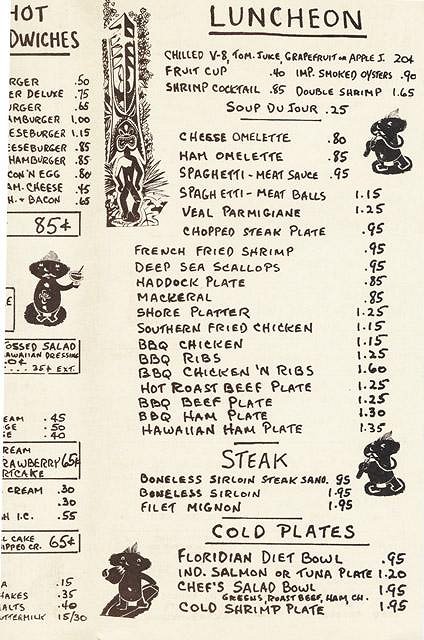 HOT
DWICHES
RGER .50
ER DELUXE .75
URGER .65
AMBURGER 1.00
EESEBURGER 1.15
EESEBURGER .85
HAMBURGER .85
CON'N EGG .80
AM. CHEESE .45
H. & BACON .65
85¢
OSSED SALAD
AWAIIAN DRESSING
.0¢
.... 35¢ EXT.
EAM .45
GE .50
SE .40
REAM
RAWBERRY 65¢
RTCAKE
CREAM .30
.30
H I.C. .55
L CAKE
IPPED CR. 65¢
A .15
HAKES .35
ALTS .40
UTTERMILK 15/30
LUNCHEON
CHILLED V-8, TOM. JUICE, GRAPEFRUIT OR APPLE J. 20¢
FRUIT CUP .40 IMP. SMOKED OYSTERS .90
SHRIMP COCKTAIL .85 DOUBLE SHRIMP 1.65
SOUP DU JOUR .25
CHEESE OMELETTE .80
HAM OMELETTE .85
SPAGHETTI - MEAT SAUCE .95
SPAGHETTI - MEAT BALLS 1.15
VEAL PARMIGIANE 1.25
CHOPPED STEAK PLATE .95
FRENCH FRIED SHRIMP .95
DEEP SEA SCALLOPS .95
HADDOCK PLATE .85
MACKERAL .85
SHORE PLATTER 1.25
SOUTHERN FRIED CHICKEN 1.15
BBQ CHICKEN 1.15
BBQ RIBS 1.25
BBQ CHICKEN 'N RIBS 1.60
HOT ROAST BEEF PLATE 1.25
BBQ BEEF PLATE 1.25
BBQ HAM PLATE 1.30
HAWAIIAN HAM PLATE 1.35
STEAK
BONELESS SIRLOIN STEAK SAND. .95
BONELESS SIRLOIN 1.95
FILET MIGNON 1.95
COLD PLATES
FLORIDIAN DIET BOWL .95
IND. SALMON OR TUNA PLATE 1.20
CHEF'S SALAD BOWL 1.95
GREENS, ROAST BEEF, HAM, CH.
COLD SHRIMP PLATE 1.95